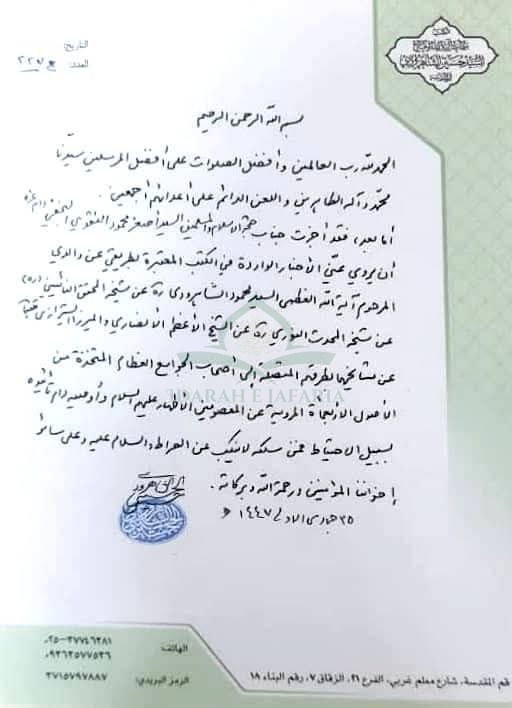 التاريخ:
العدد: ٢٢٧ ع
بسم الله الرحمن الرحيم
الحمد لله رب العالمين وأفضل الصلوات على أفضل المرسلين سيدنا
محمد وآله الطاهرين واللعن الدائم على أعدائهم أجمعين.
أما بعد، فقد أجزت جناب حجة الإسلام والمسلمين السيد أصغر محمود النقوي النجفي دام عزه
أن يروي عني الأخبار الواردة في الكتب المعتبرة بطريقي عن والدي
المرحوم آية الله العظمى السيد محمود الشاهرودي ره عن شيخه المحقق النائيني (ره)
عن شيخه المحدث النوري ره عن الشيخ الأعظم الأنصاري والميرزا الشيرازي
عن مشايخهما بطرقهم المتصلة إلى أصحاب الجوامع العظام المتخذة من
الأصول الأربعمأة المروية عن المعصومين الأطهار عليهم السلام وأوصيه دام تأييده
بسبيل الاحتياط فمن سلكه لا ينكب عن الصراط والسلام عليه وعلى سائر
إخواننا المؤمنين ورحمة الله وبركاته.
٢٥ جمادى الأولى ١٤٤٧ هـ
IDARAH E JAFARIA
الهاتف:
٠٢٥-٣٧٧٤٦٢٨١
٠٩٣٦٢٥٧٧٥٣٦
الرمز البريدي: ٣٧١٥٧٩٧٨٨٧
قم المقدسة، شارع معلم غربي، الفرع ٢١، الزقاق ٧، رقم البناء ١٨